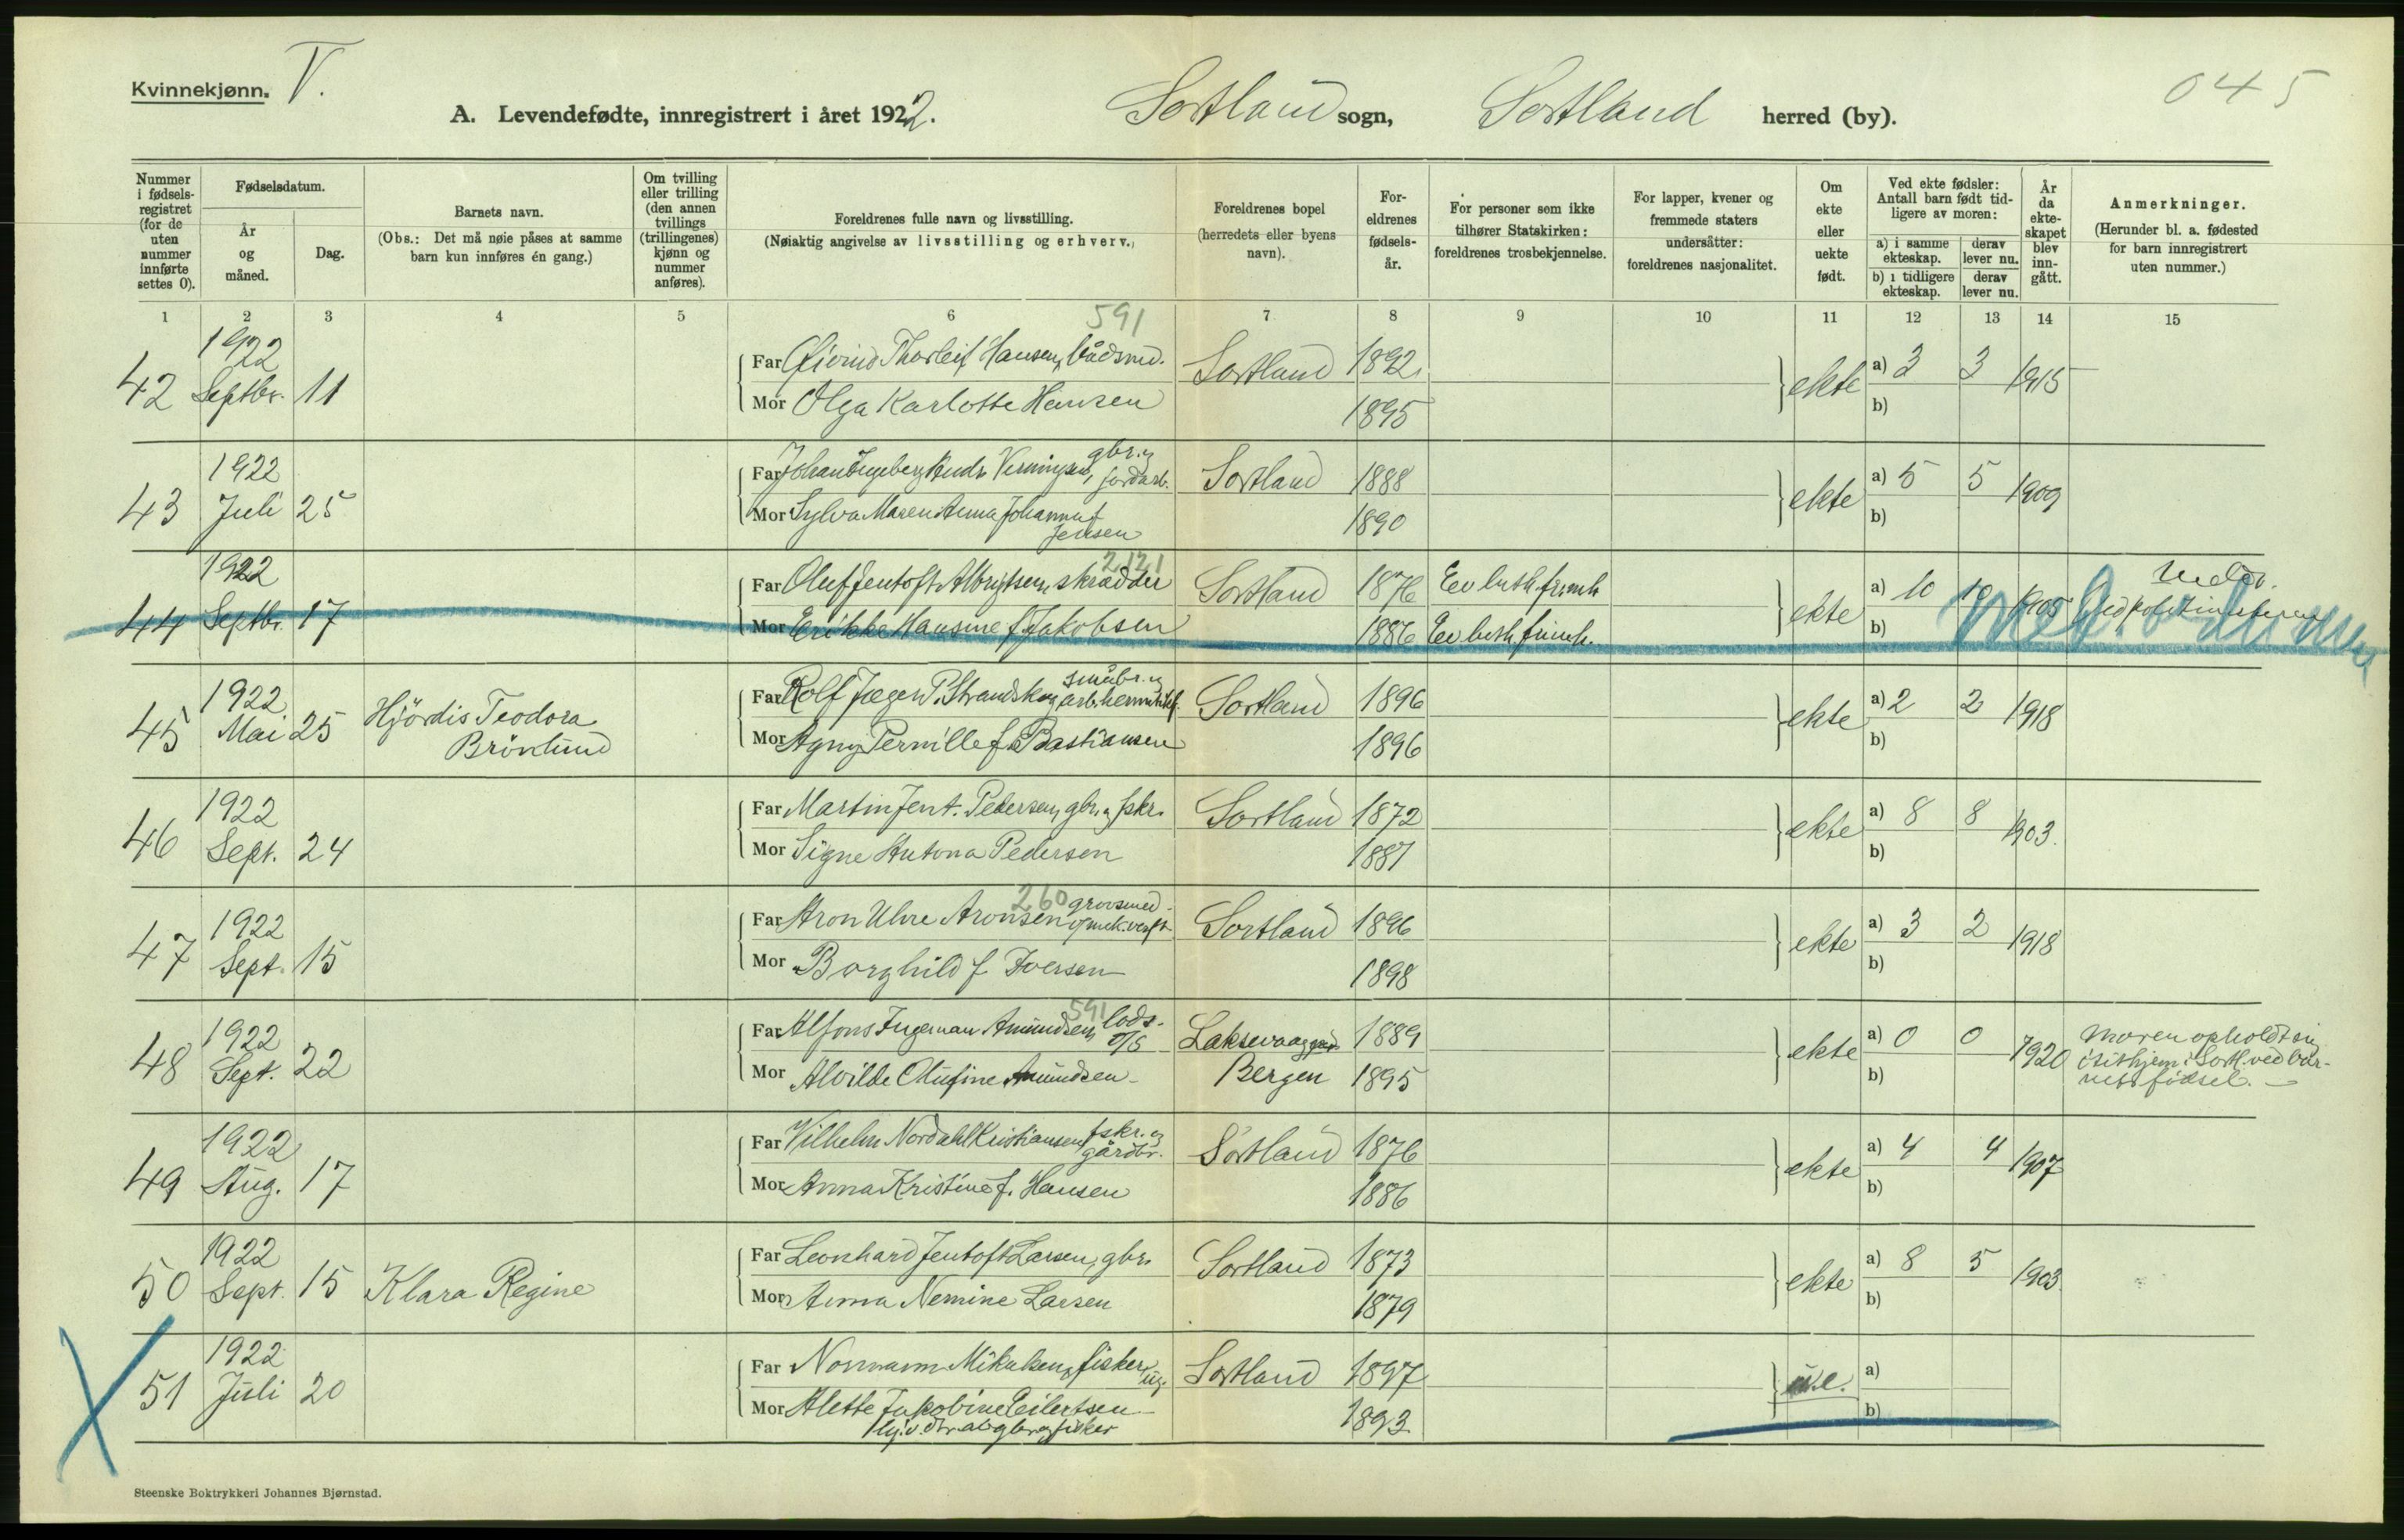 Kvinnekjønn. V.
045
A. Levendefødte, innregistrert i året 1922. Sortland sogn, Sortland herred (by).
Nummer i fødselsregistret (for de uten nummer innførte settes 0).
Fødselsdatum.
År og måned.
Dag.
Barnets navn.
(Obs.: Det må nøie påses at samme barn kun innføres én gang.)
Om tvilling eller trilling (den annen tvillings (trillingenes) kjønn og nummer anføres).
Foreldrenes fulle navn og livsstilling.
(Nøiaktig angivelse av livsstilling og erhverv.)
Foreldrenes bopel (herredets eller byens navn).
Foreldrenes fødselsår.
For personer som ikke tilhører Statskirken: foreldrenes trosbekjennelse.
For lapper, kvener og fremmede staters undersåtter: foreldrenes nasjonalitet.
Om ekte eller uekte født.
Ved ekte fødsler: Antall barn født tidligere av moren:
a) i samme ekteskap. derav lever nu.
b) i tidligere ekteskap. derav lever nu.
År da ekteskapet blev inngått.
Anmerkninger.
(Herunder bl. a. fødested for barn innregistrert uten nummer.)
1 2 3 4 5 6 7 8 9 10 11 12 13 14 15
591
42 1922 Septbr. 11 Far Øivind Thorleif Hansen, Sortland 1892 ekte a) 3 3 1915
Mor Olga Karlotte Hansen 1895 b)
43 1922 Juli 25 Far Johan Ingeberg Andr. gbr. og jordarb. Sortland 1888 ekte a) 5 5 1909
Mor Sylva Maren Anna Johanna f. Jensen 1890 b)
2121
44 1922 Septbr. 17 Far Oluf Jentoft Albrigtsen, skrædder Sortland 1876 Ev luth frimh ekte a) 10 10 1905
Mor Erikke Hansine f. Jakobsen 1886 Ev luth frimh. b)
45 1922 Mai 25 Hjördis Teodora Brönlund Far Rolf Jæger P. Strandskog småbr. og Sortland 1896 ekte a) 2 2 1918
Mor Agny Pernille f. Bastiansen 1896 b)
46 1922 Sept. 24 Far Martin Jent. Pedersen, gbr. og fskr. Sortland 1872 ekte a) 8 8 1903.
Mor Signe Antona Pedersen 1881 b)
260
47 1922 Sept. 15 Far Aron Uhre Aronsen grovsmed v/mek. verkst. Sortland 1896 ekte a) 3 2 1918
Mor Borghild f. Iversen 1898 b)
591
48 1922 Sept. 22 Far Alfons Ingeman Amundsen, lods. Laksevaag 1889 ekte a) 0 0 1920 Moren opholdt sig i sit hjem i Sortl. ved barnets fødsel. -
Mor Alvilde Olufine Amundsen Bergen 1895 b)
49 1922 Aug. 17 Far Vilhelm Nordahl Kristiansen fskr. og gårdbr. Sortland 1876 ekte a) 4 4 1907
Mor Anna Kristine f. Hansen 1886 b)
50 1922 Sept. 15 Klara Regine Far Leonhard Jentoft Larsen, gbr. Sortland 1873 ekte a) 8 5 1903.
Mor Anna Nemine Larsen 1879 b)
51 1922 Juli 20 Far Normann Mikalsen, fisker, ug. Sortland 1897 u.e. a)
Mor Alette Jakobine Eilertsen 1893 b)
Steenske Boktrykkeri Johannes Bjørnstad.